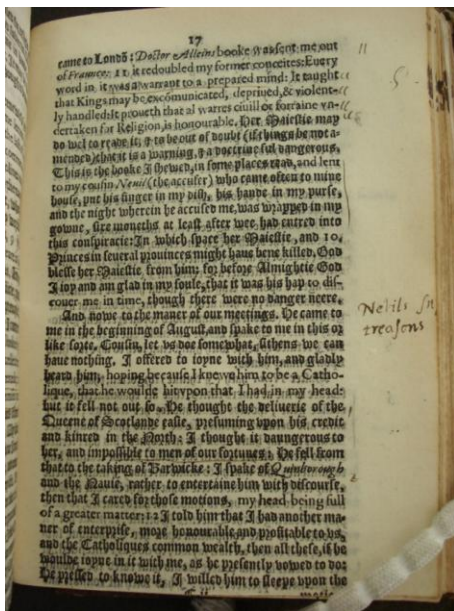 17
came to Londō: Doctor Alleins booke was sent me out
of Fraunce: 11 it redoubled my former conceites: Euery
word in it was a warrant to a prepared mind: It taught
that Kings may be excōmunicated, depriued, & violent-
ly handled: It proueth that al warres ciuill or forraine vn-
dertaken for Religion, is honourable. Her Maiestie may
do wel to reade it, & to be out of doubt (if things be not a-
mended) that it is a warning, & a doctrine ful dangerous,
This is the booke I shewed, in some places read, and lent
to my cousin Neuil (the accuser) who came often to mine
house, put his finger in my dish, his hande in my purse,
and the night wherein he accused me, was wrapped in my
gowne, sixe moneths at least after wee had entred into
this conspiracie: In which space her Maiestie, and 10.
Princes in seueral prouinces might haue bene killed. God
blesse her Maiestie from him: for before Almightie God
I ioy and am glad in my soule, that it was his hap to dis-
couer me in time, though there were no danger neere.
And nowe to the maner of our meetings. He came to
me in the beginning of August, and spake to me in this or
like sorte. Cousin, let vs doe somewhat, sithens we can
haue nothing. I offered to ioyne with him, and gladly
heard him, hoping because I knew him to be a Catho-
lique, that he woulde hit vpon that I had in my head:
but it fell not out so. He thought the deliuerie of the
Queene of Scotlande easie, presuming vpon his credit
and kinred in the North: I thought it daungerous to
her, and impossible to men of our fortunes: He fell from
that to the taking of Barwicke: I spake of Quinborough
and the Nauie, rather to entertaine him with discourse,
then that I cared for those motions, my head being full
of a greater matter: 12 I told him that I had another ma-
ner of enterprise, more honourable and profitable to vs,
and the Catholiques common wealth, then all these, if he
woulde ioyne in it with me, as he presently vowed to do:
He pressed to knowe it, I willed him to sleepe vpon the
Nevils
treasons